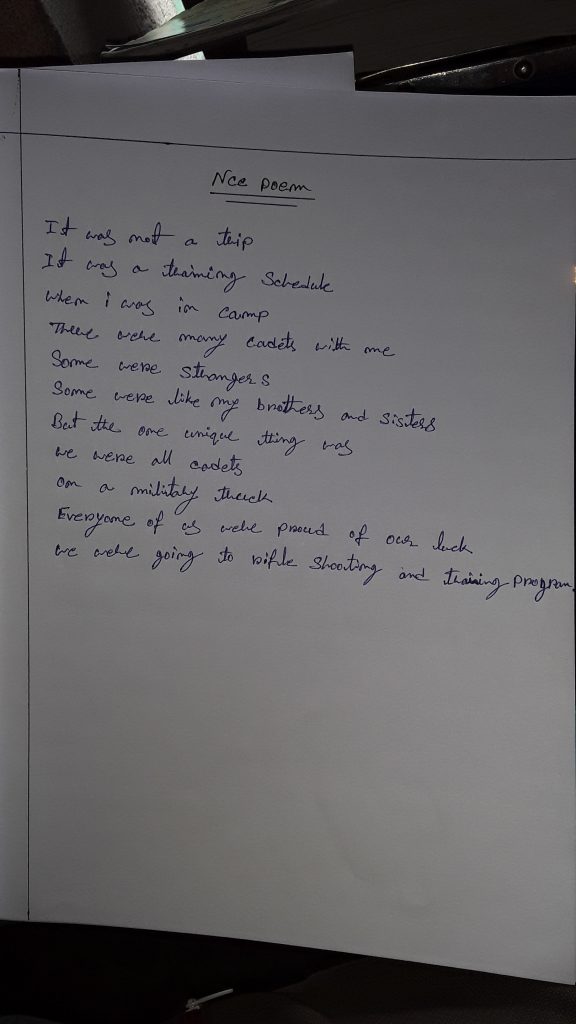 Ncc poem
It was not a trip
It was a training Schedule
when i was in camp
There were many cadets with me
Some were strangers
Some were like my brothers and sisters
But the one unique thing was
we were all cadets
on a military truck
Everyone of us were proud of our luck
we were going to rifle shooting and training program.